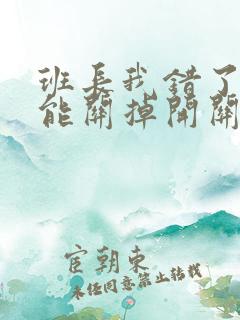 班长我错了
能关掉开关
宦朝东
未经同意禁止转载